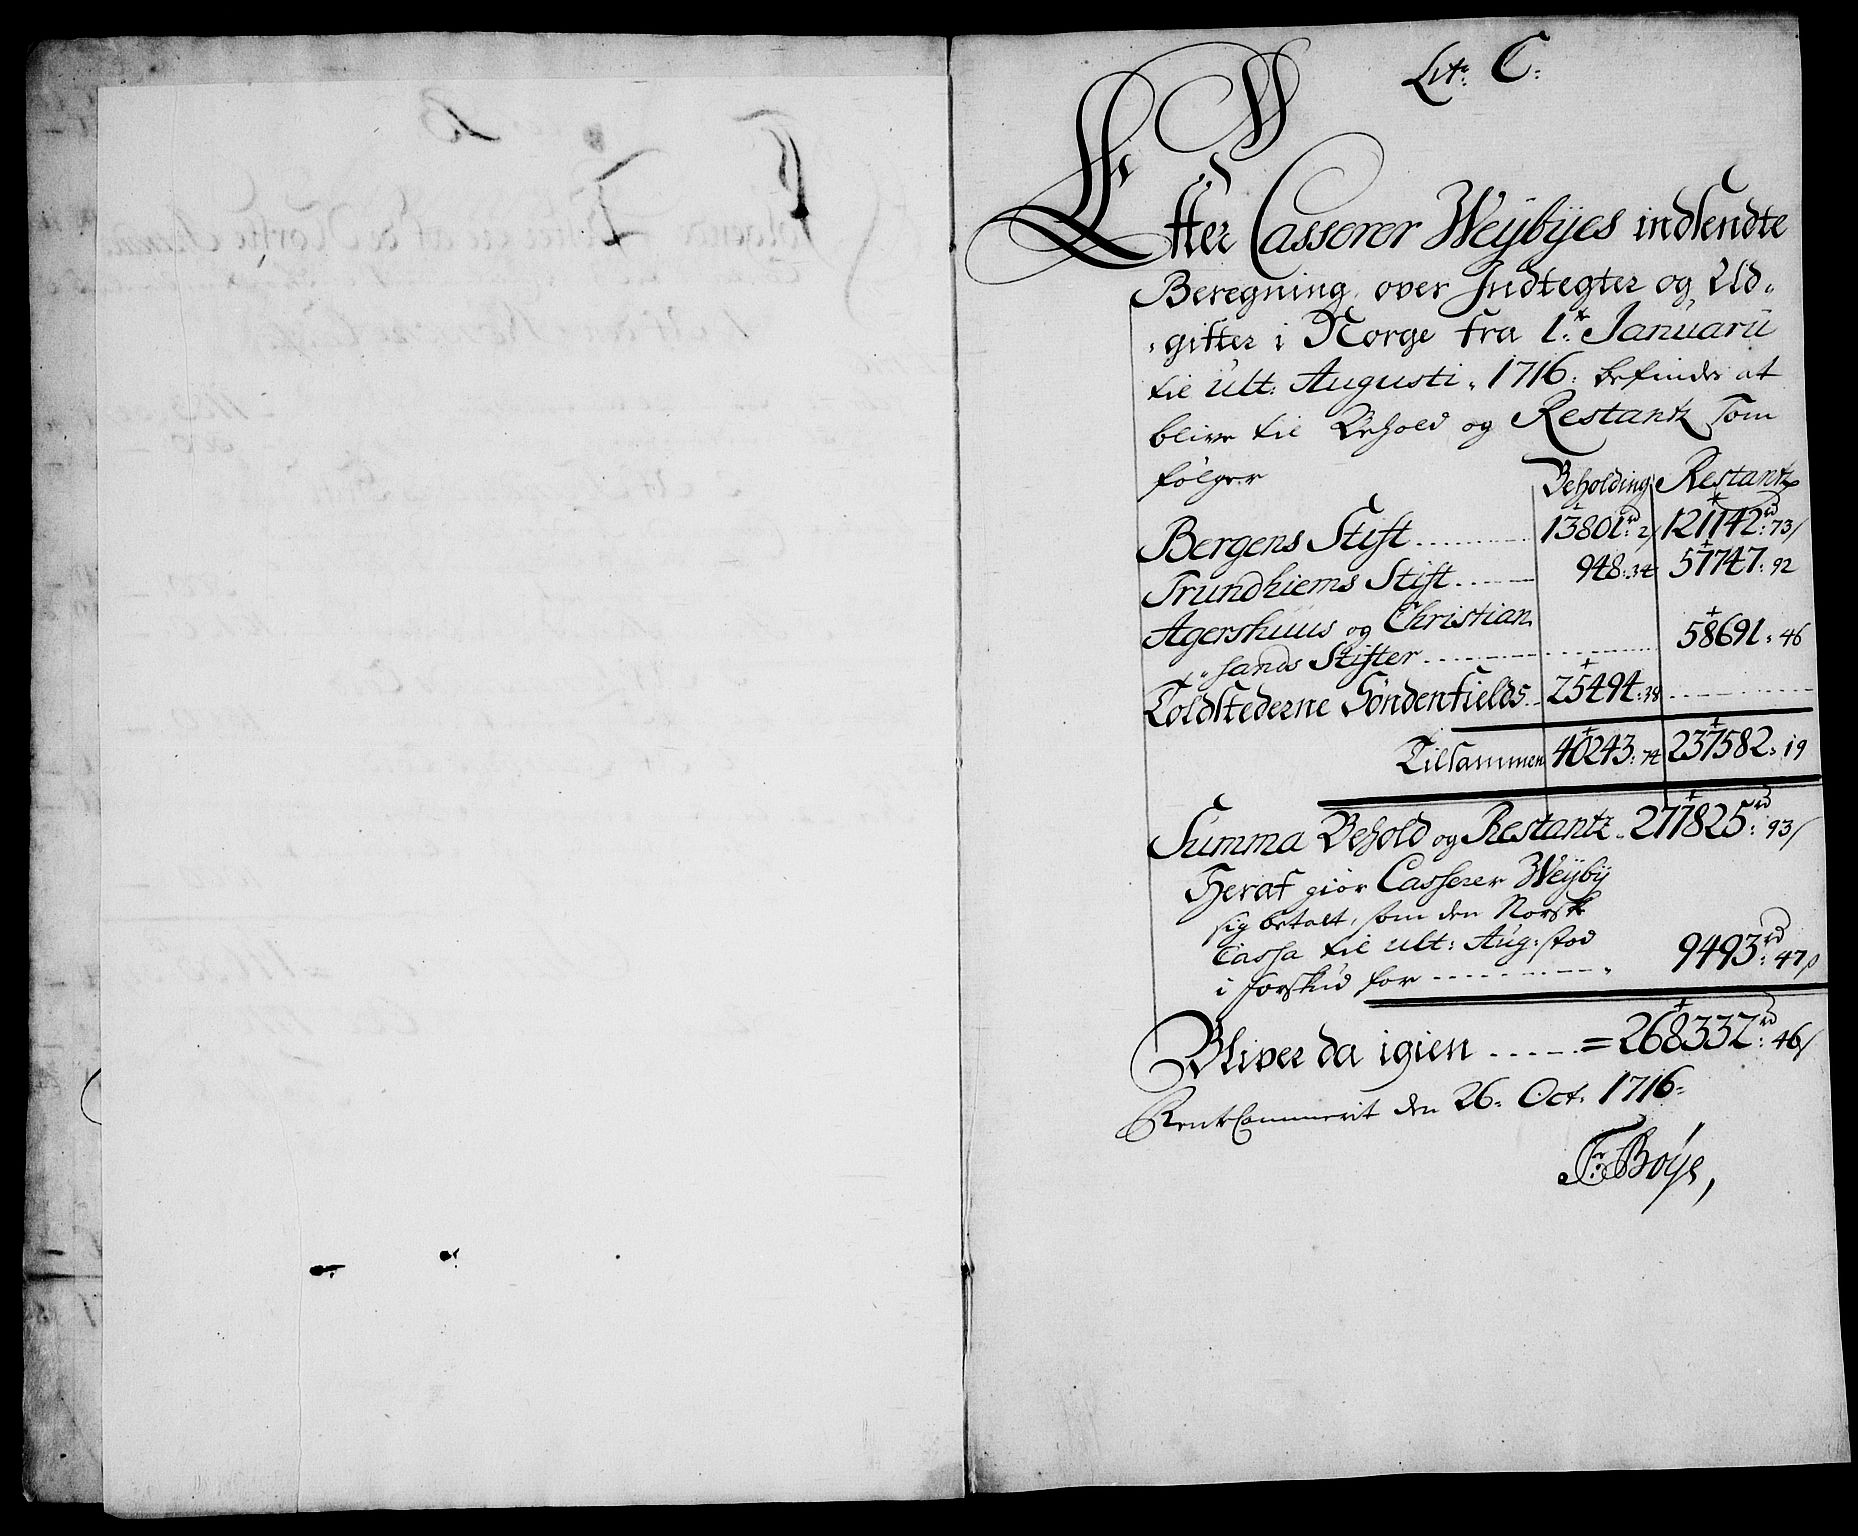 Litr. C.
Efter Casserer Weÿbÿes indsendte
Beregning over Indtegter og Ud-
gifter i Norge fra 1ste Januarii
til ult: Augusti 1716. befindes at
blive til Behold og Restantz som
følger
Beholding Restantz
Bergens Stift 13801rd: 2/ 121142rd: 73/
Trundhiems Stift 948: 34 57747: 92
Agershuus og Christian
sands Stifter 58691: 46
Toldstederne Søndenfields 25494: 38
Tilsammen 40243: 74 237582: 19
Summa Behold og Restantz 277825rd: 93/
Heraf giør Casserer Weÿbÿ
sig betalt, som den Norske
Cassa til ult: Aug: stod
i forskud for 9493rd: 47/
Bliver da igien = 268332rd: 46/
RenteCammerit den 26. Oct. 1716.
F: Böÿe,